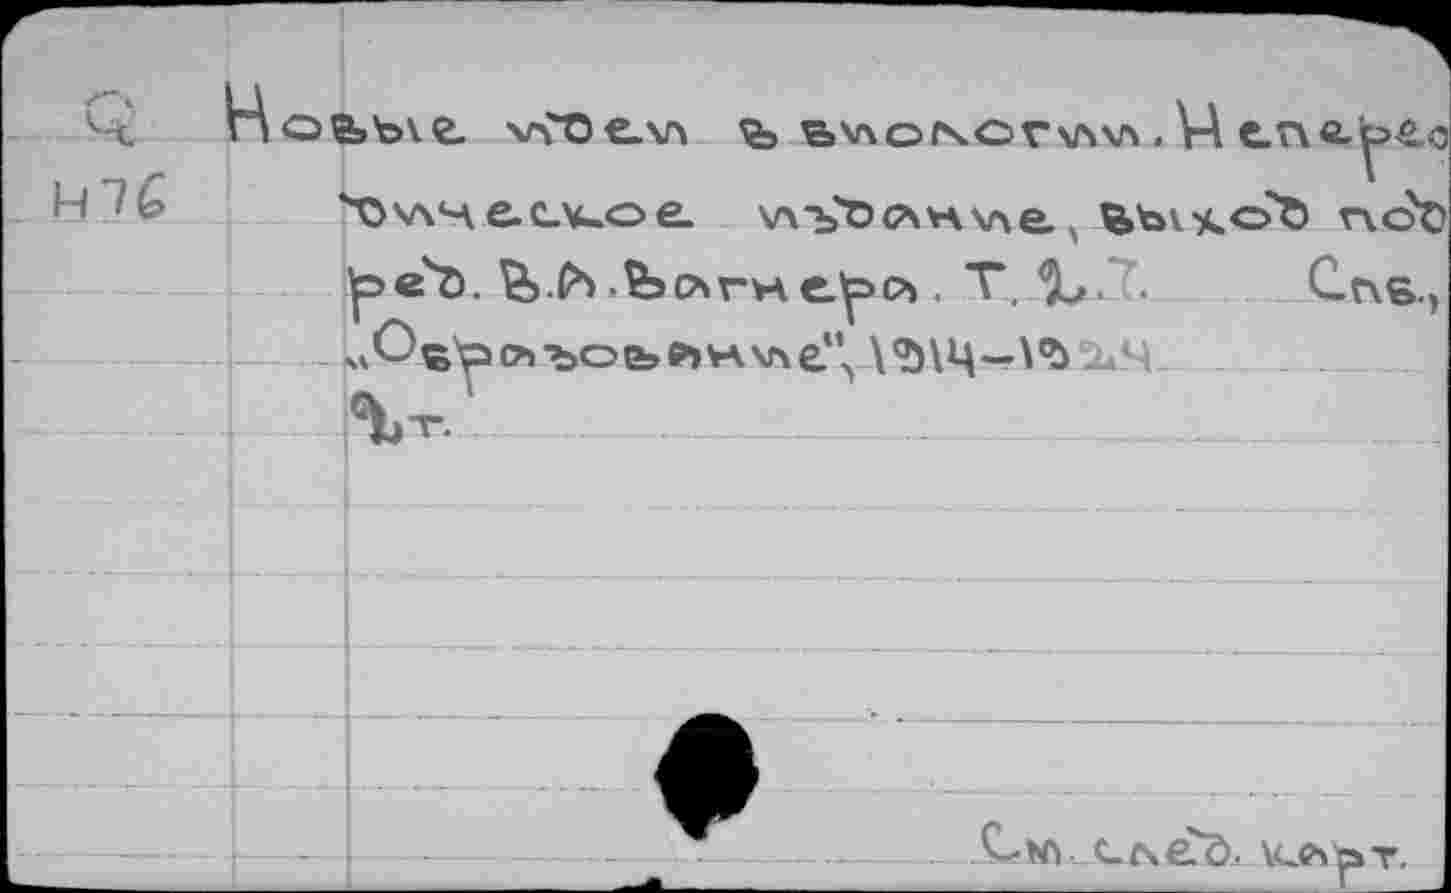 Q Новые идеи в биологии. Неперео
Н76 дическое издание, выход под
ред. В.А. Вагнера. Т. 2. 7. Спб.,
„Образование", 1914–1924
2т.
См. след. карт.